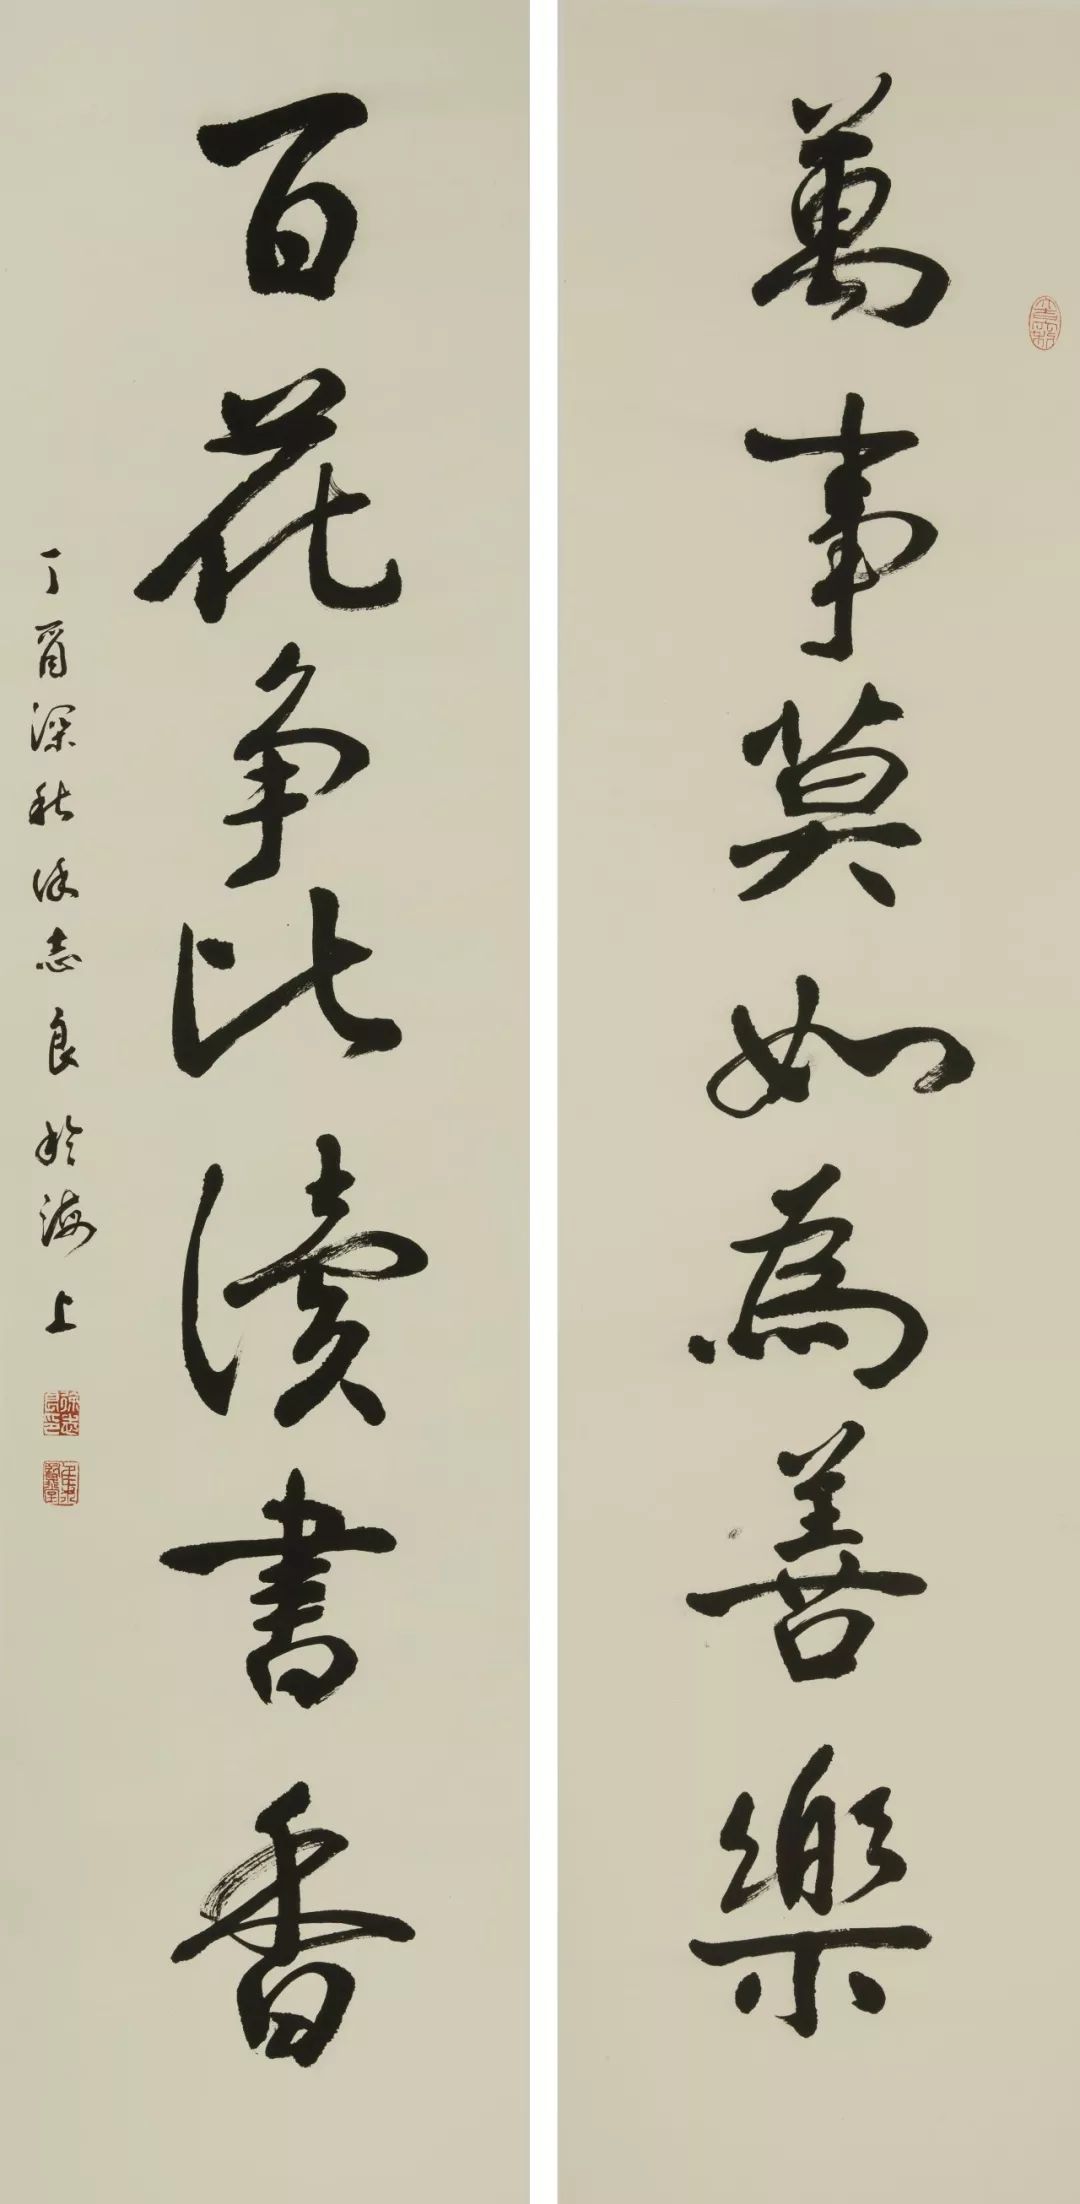 萬事莫如為善樂
百花争比讀書香
丁酉深秋徐志良於海上
徐志良印